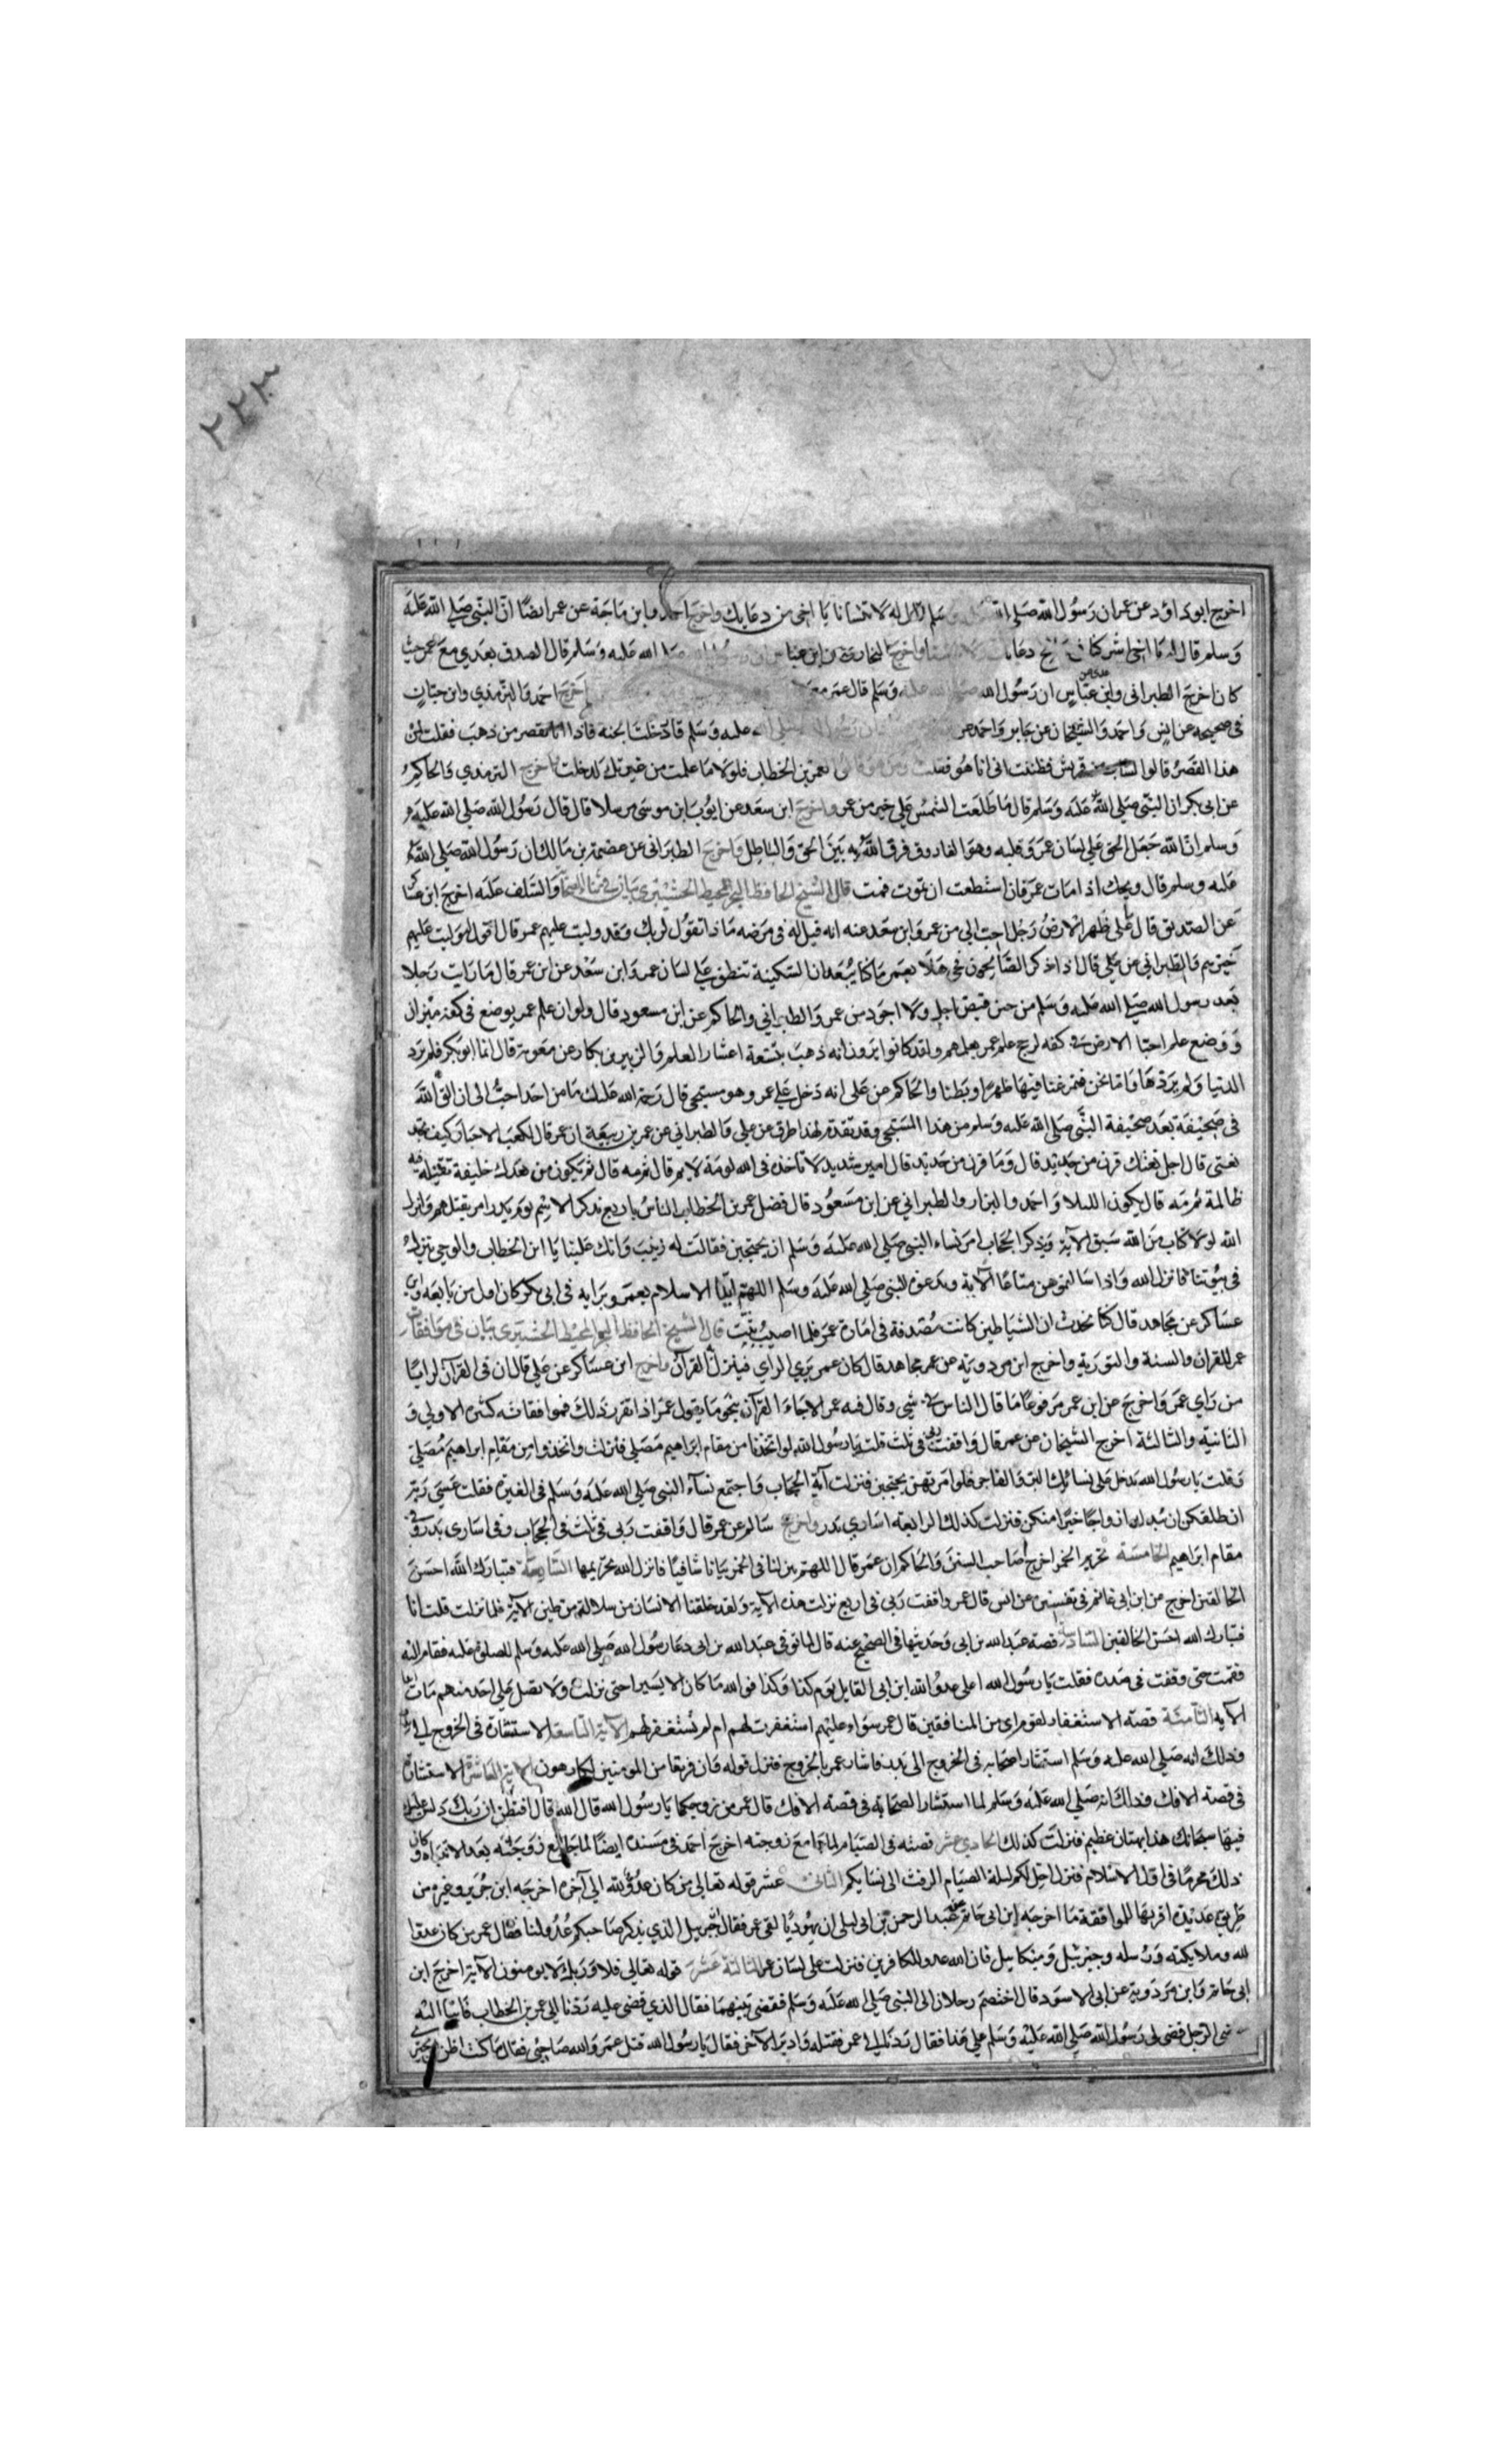 ٢٢٣
اخرج ابو داود عن عمر ان رسول الله صلى الله عليه وسلم قال له لا تنسانا يا اخي من دعايك واخرج احمد وابن ماجة عن عمر ايضًا انّ النبي صلى الله عليه
وسلم قال له يا اخي اشركنا في صالح دعايك ولا تنسنا واخرج البخاري عن ابن عباس ان رسول الله صلى الله عليه وسلم قال الصدق بعدي مع عمر حيث
كان اخرج الطبراني وابن عباس ان رسول الله صلى الله عليه وسلم قال عمر معي اخرج احمد والترمذي وابن حبان
في صحيحه عن انس واحمد والشيخان عن جابر واحمد عن ان رسول الله صلى الله عليه وسلم قال دخلت الجنة فاذا انا بقصر من ذهب فقلت لمن
هذا القصر قالوا لشاب من قريش فظننت اني انا هو فقلت ومن هو قالوا لعمر بن الخطاب فلولا ما علمت من غيرتك لدخلته واخرج الترمذي والحاكم
عن ابي بكر ان النبي صلى الله عليه وسلم قال ما طلعت الشمس على خير من عمر واخرج ابن سعد عن ايوب ابن موسى مرسلا قال قال رسول الله صلى الله عليه
وسلم ان الله جعل الحق على لسان عمر وقلبه وهو الفاروق فرق الله به بين الحق والباطل واخرج الطبراني عن عصمة بن مالك ان رسول الله صلى الله
عليه وسلم قال ويحك اذا مات عمر فان استطعت ان تموت فمت قال الشيخ الحافظ البحر المحيط الحشيبري بيان في ثناء الصحابة والسلف عليه اخرج ابن عساكر
عن الصديق قال ما على ظهر الارض رجل احب الي من عمر وابن سعد عنه انه قيل له في مرضه ماذا تقول لربك وقد وليت عليهم عمر قال اقول له وليت عليهم
خيرهم والطبراني عن علي قال اذا ذكر الصالحون فحي هلا بعمر ما كنا نبعد ان السكينة تنطق على لسان عمر وابن سعد عن ابن عمر قال ما رايت رجلا
بعد رسول الله صلى الله عليه وسلم من حين قبض اجد ولا اجود من عمر والطبراني والحاكم عن ابن مسعود قال ولو ان علم عمر يوضع في كفة ميزان
ووضع علم احيا الارض في كفه لرجح علم عمر بعلمهم ولقد كانوا يرون انه ذهب بتسعة اعشار العلم والزبير بن بكار عن معوية قال اما ابو بكر فلم يرد
الدنيا ولم يردها واما نحن فتمرغنا فيها ظهرا وبطنا والحاكم عن على انه دخل على عمر وهو مسجى قال رحمة الله عليك ما من احد احب الى ان القى الله
في صحيفته بعد صحيفة النبي صلى الله عليه وسلم من هذا المسجى وقد تقدم لهذا طرق عن علي والطبراني عن عمر بن ربيعة ان عمر قال لكعب الاحبار كيف تجد
نعتي قال اجد نعتك قرن من حديد قال وما قرن من حديد قال امير شديد لا تاخذه في الله لومة لايم قال ثم مه قال ثم يكون من بعدك خليفة تقتله فيه
ظالمة ثم مه قال يكون البلا واحمد والبزار والطبراني عن ابن مسعود قال فضل عمر بن الخطاب الناس باربع بذكر الاسرى يوم بدر امر بقتلهم وانزل
الله لولا كتاب من الله سبق الآية وبذكر الحجاب امر نساء النبي صلى الله عليه وسلم ان يحتجبن فقالت له زينب وانك علينا يا ابن الخطاب والوحي ينزل
في بيوتنا فانزل الله واذا سالتموهن متاعا الآية وبدعوة النبي صلى الله عليه وسلم اللهم ايد الاسلام بعمر وبرايه في ابي بكر كان اول من بايعه وابن
عساكر عن مجاهد قال كنا نحدث ان الشياطين كانت مصفدة في امارة عمر فلما اصيب بثت قال الشيخ الحافظ البحر المحيط الحشيبري بيان في موافقات
عمر للقران والسنة والتورية واخرج ابن مردويه عن عمر مجاهد قال كان عمر يري الراي فينزل القرآن واخرج ابن عساكر عن علي قال ان في القرآن لرايا
من راي عمر واخرج عن ابن عمر مرفوعا ما قال الناس في شي وقال فيه عمر الا جاء القرآن بنحو ما يقول عمر اذا تقرر ذلك فموافقاته كثيرة الاولي و
الثانية والثالثة اخرج الشيخان عن عمر قال وافقت ربي في ثلث قلت يا رسول الله لو اتخذنا من مقام ابراهيم مصلى فنزلت واتخذوا من مقام ابراهيم مصلى
وقلت يا رسول الله يدخل على نسائك البر والفاجر فلو امرتهن يحتجبن فنزلت آية الحجاب واجتمع نسآء النبي صلى الله عليه وسلم في الغيرة فقلت عسى ربه
ان طلقكن ان يبدله ازواجا خيرا منكن فنزلت كذلك الرابعة اساري بدر واخرج سالم عن عمر قال وافقت ربي في ثلث في الحجاب وفي اسارى بدر وفي
مقام ابراهيم الخامسة تحريم الخمر اخرج اصحاب السنن والحاكم ان عمر قال اللهم بين لنا في الخمر بيانا شافيا فانزل الله تحريمها السابعة فتبارك الله احسن
الخالقين اخرج من ابن ابي حاتم في تفسيره عن انس قال عمر وافقت ربي في اربع نزلت هذه الآية ولقد خلقنا الانسان من سلالة من طين الآية فلما نزلت قلت انا
فتبارك الله احسن الخالقين السادسة قصة عبد الله بن ابي وحديثها في الصحيح عنه قال لما توفي عبد الله بن ابي دعا رسول الله صلى الله عليه وسلم للصلوة عليه فقام اليه
فقمت حتى وقفت في صدره فقلت يا رسول الله اعلى عدو الله ابن ابي القايل يوم كذا وكذا فوالله ما كان الا يسيرا حتى نزلت ولا تصل على احد منهم مات
الآيه الثامنة قصة الاستغفار لقوم اي من المنافقين قال عمر سواء عليهم استغفرت لهم ام لم تستغفر لهم الآية التاسعة الاستشارة في الخروج الى بدر
وذلك انه صلى الله عليه وسلم استشار اصحابه في الخروج الى بدر فاشار عمر بالخروج فنزل قوله وان فريقا من المومنين لكارهون الآية العاشرة الاستشارة
في قصة الافك وذلك انه صلى الله عليه وسلم لما استشار الصحابة في قصة الافك قال عمر من زوجكها يا رسول الله قال الله قال افتظن ان ربك دلس عليك
فيها سبحانك هذا بهتان عظيم فنزلت كذلك الحادي عشر قصته في الصيام لما جامع زوجته اخرج احمد في مسنده ايضا لما جامع زوجته بعد الانتباه وكان
ذلك محرما في اول الاسلام فنزل احل لكم ليلة الصيام الرفث الى نسايكم الثاني عشر قوله تعالى من كان عدوا لله الى آخره اخرجه ابن جرير وغيره من
طرق عديدة اقربها للموافقة ما اخرجه ابن ابي حاتم عن عبد الرحمن بن ابي ليلى ان يهوديا لقي عمر فقال جبريل الذي يذكر صاحبكم عدو لنا فقال عمر من كان عدوا
لله وملايكته ورسله وجبرئيل وميكاييل فان الله عدو للكافرين فنزلت على لسان عمر الثالثة عشر قوله تعالى فلا وربك لا يومنون الآية اخرج ابن
ابي حاتم وابن مردوية عن ابي الاسود قال اختصم رجلان الى النبي صلى الله عليه وسلم فقضى بينهما فقال الذي قضى عليه ردنا الى عمر بن الخطاب فاتيا اليه
الرجل قضى لي رسول الله صلى الله عليه وسلم على هذا فقال ردنا الى عمر فقتله وادبر الآخر فقال يا رسول الله قتل عمر والله صاحبي فقال ما كنت اظن